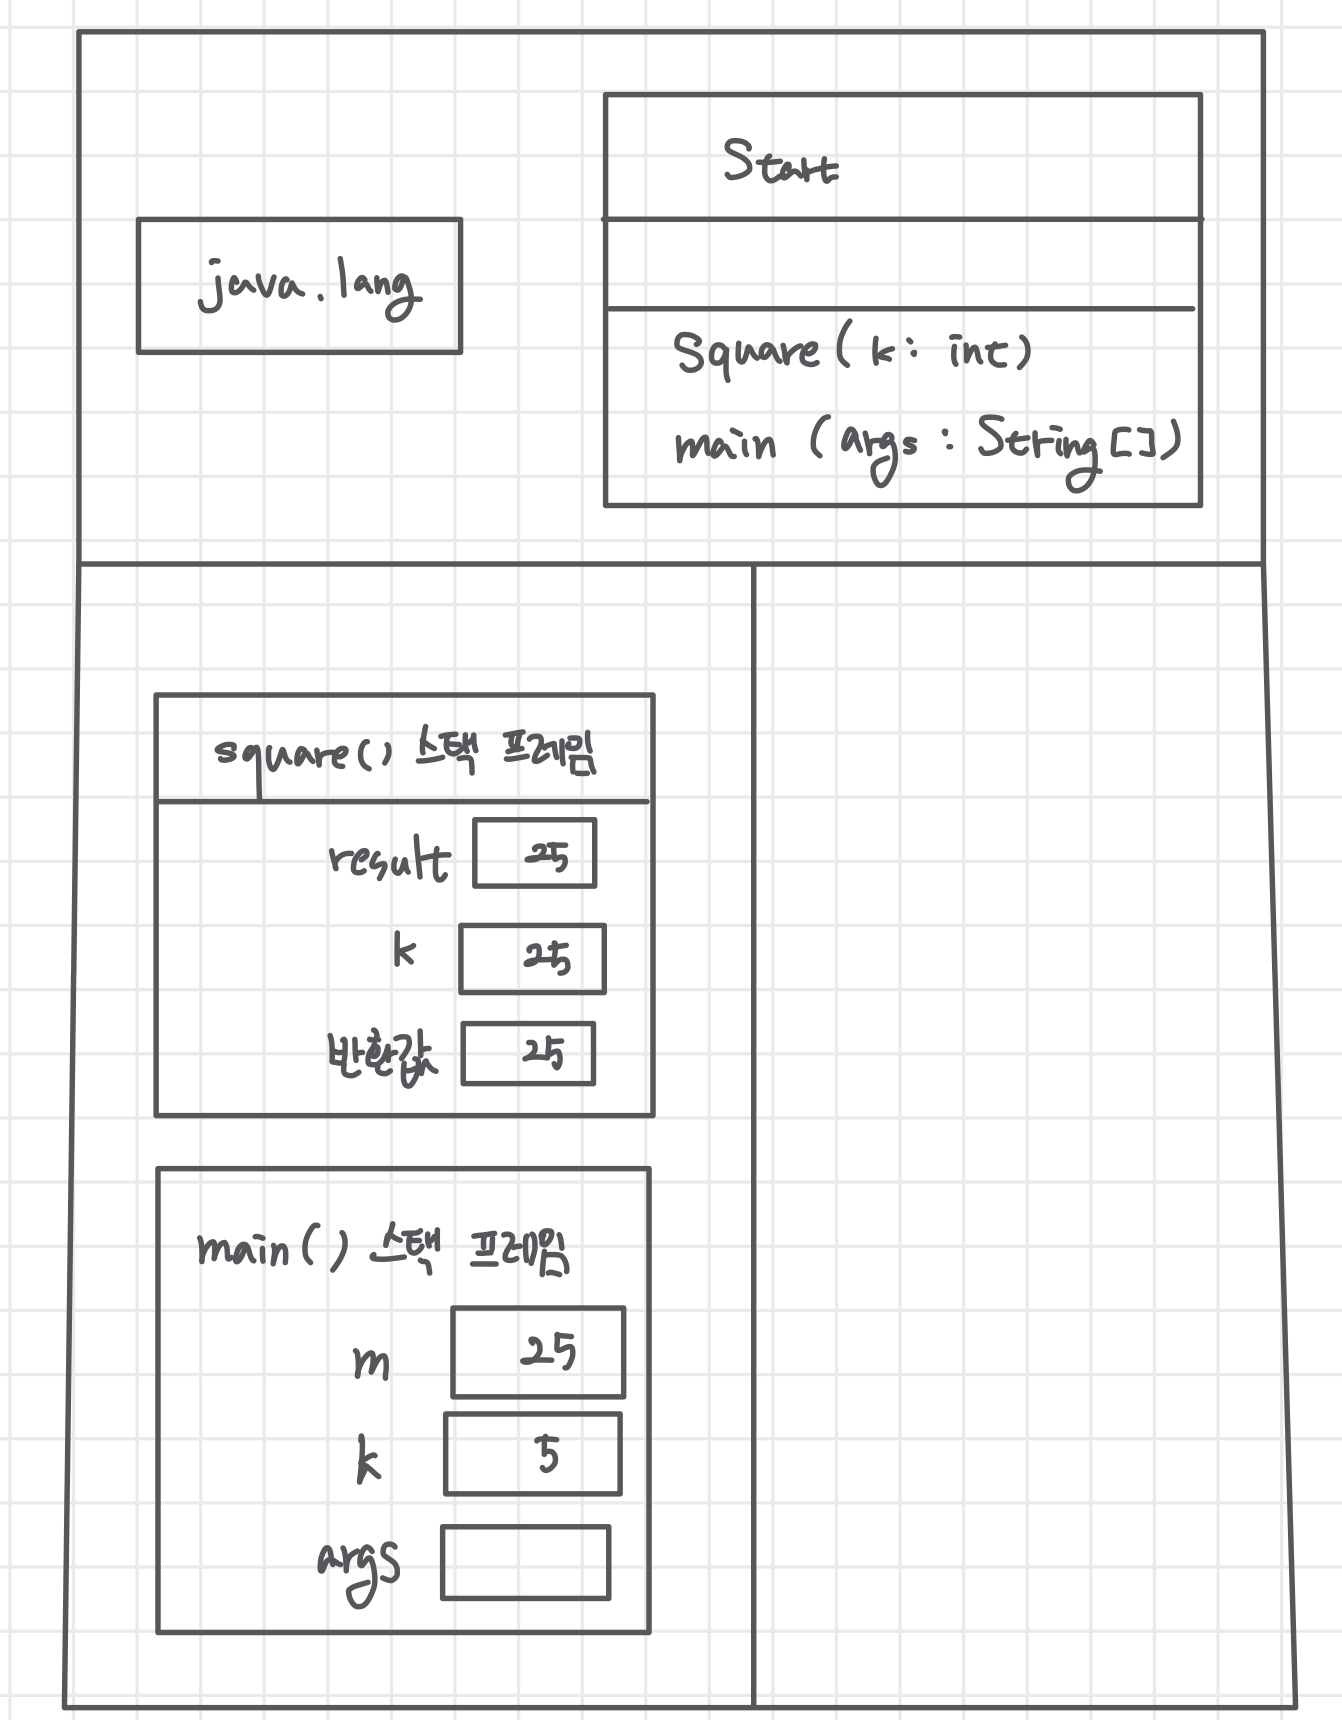 Start
java.lang
Square (k: int)
main (args : String[])
square() 스택 프레임
result 25
k 25
반환값 25
main() 스택 프레임
m 25
k 5
args